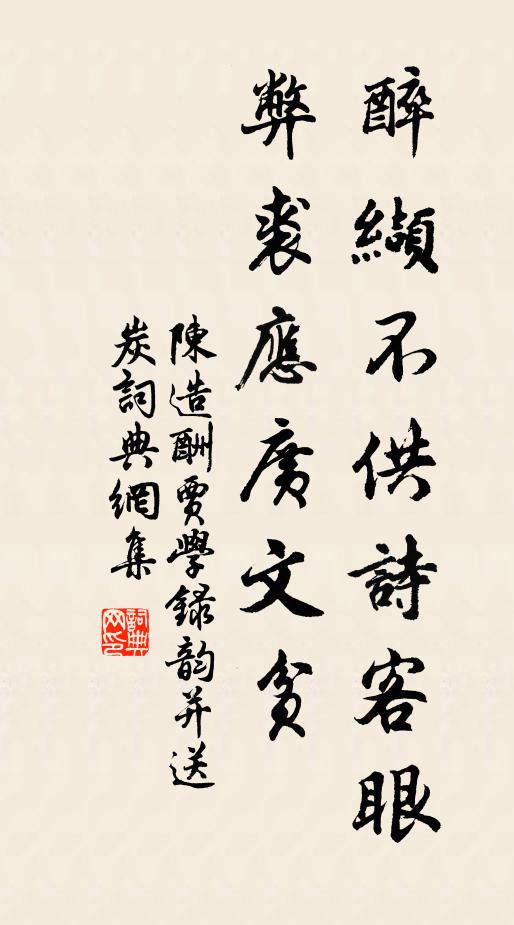 醉纈不供詩客眼
弊裘應廣文貧
陳造酬賈學録韵并送
炭詞典網集
詞典網印